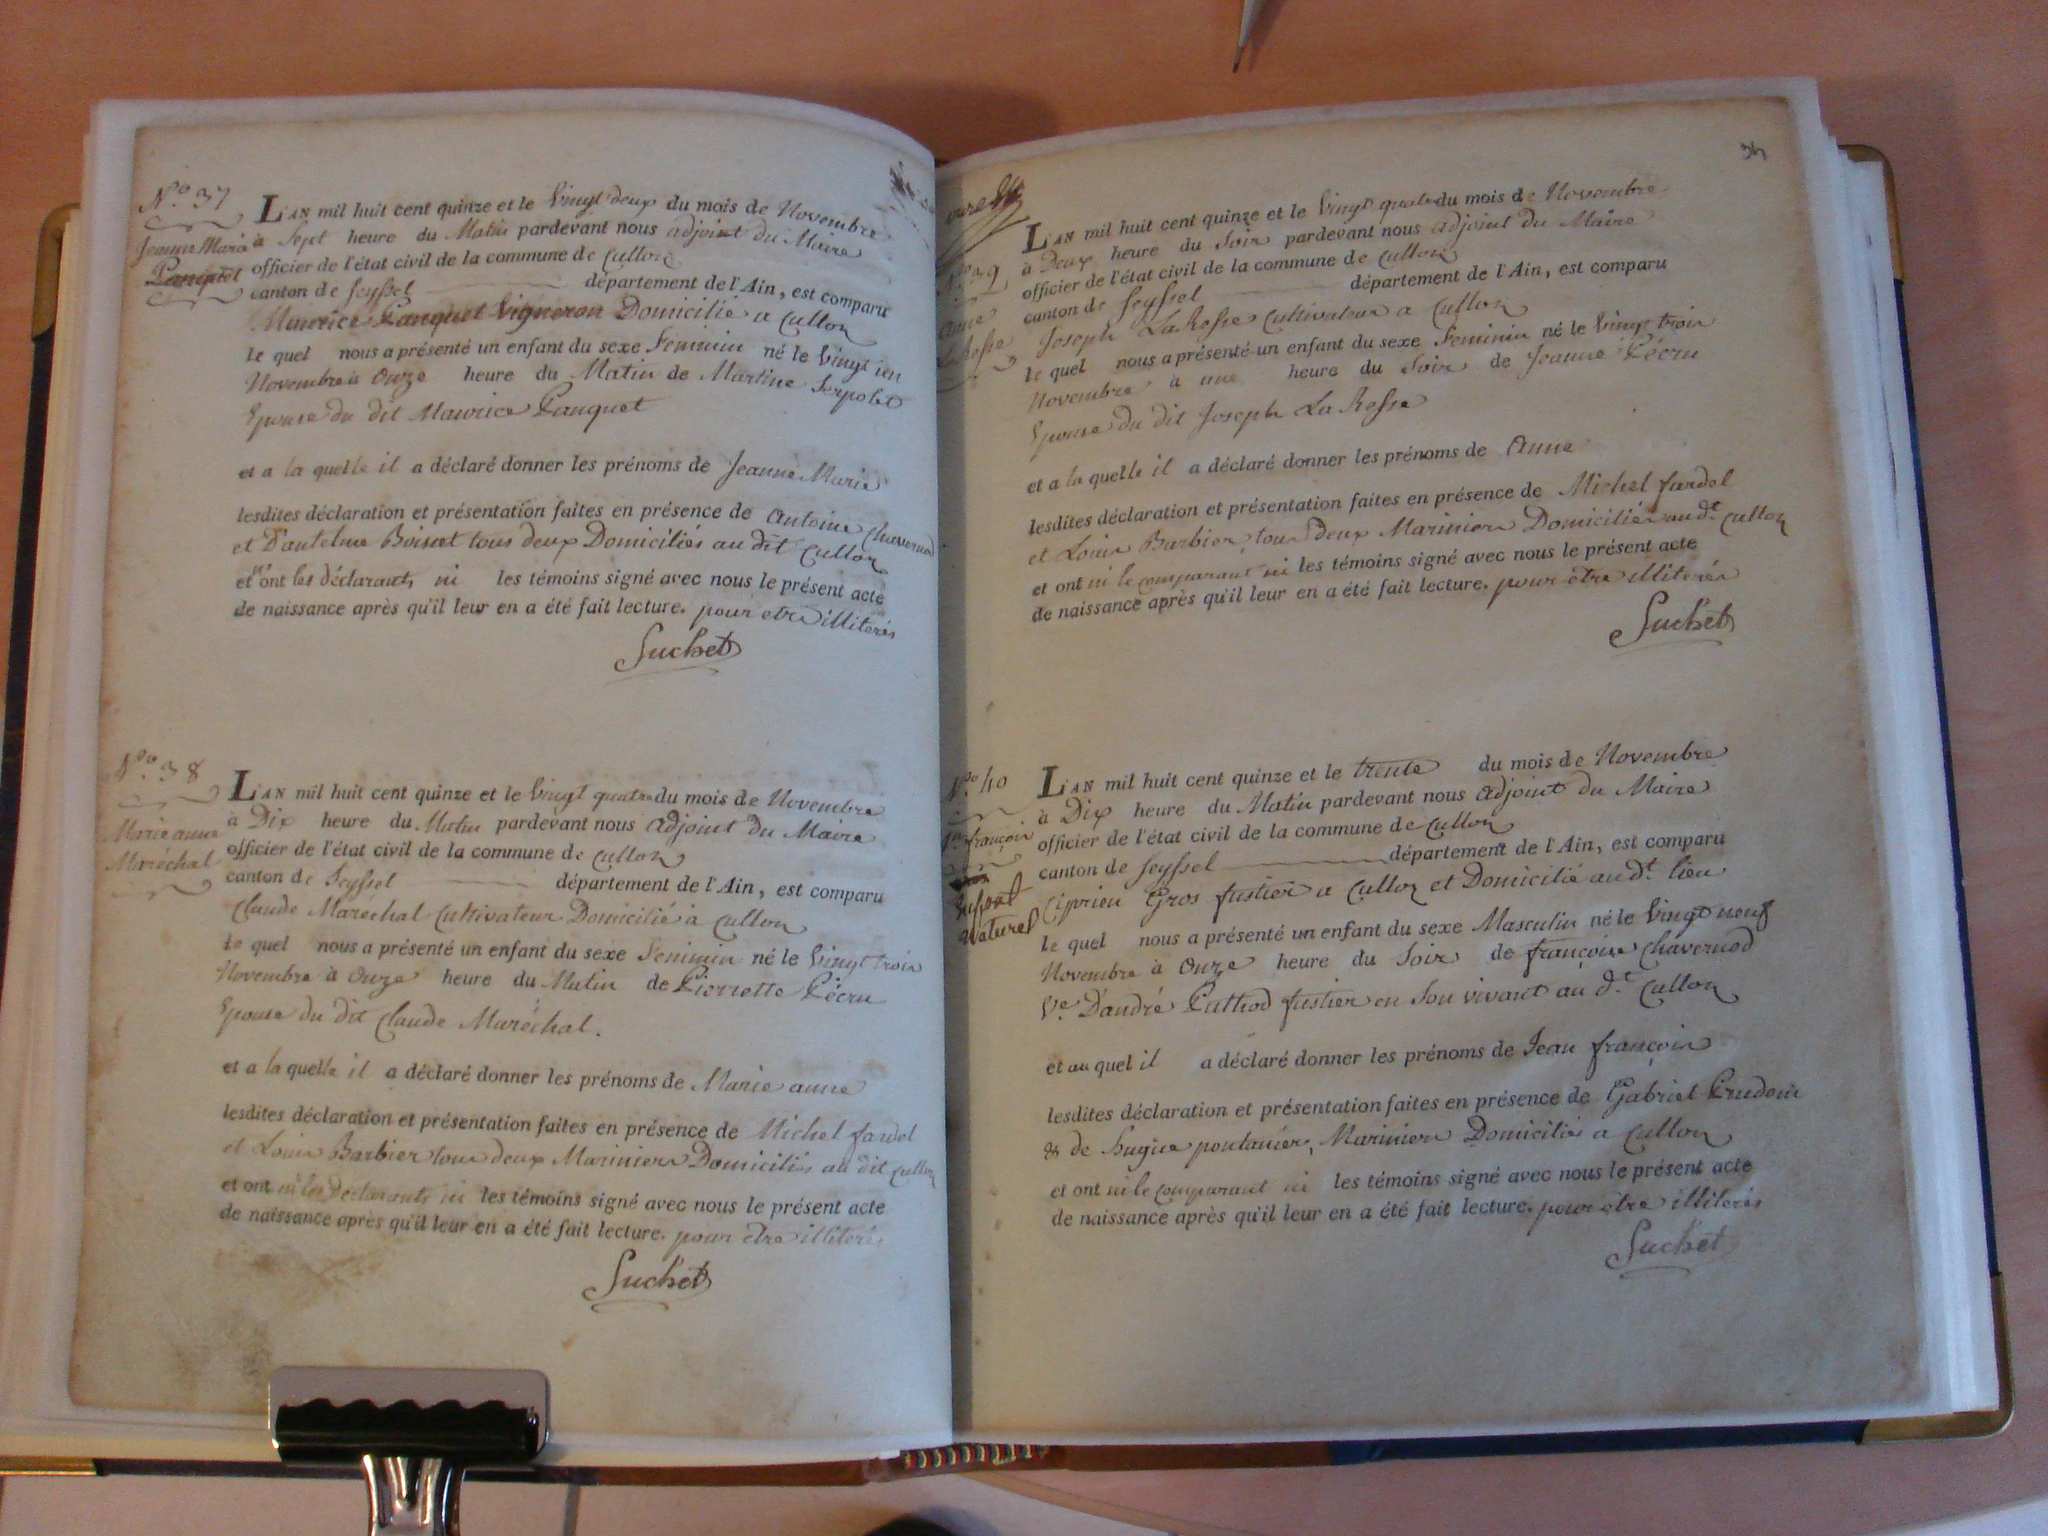 N.º 37
Jeanne Marie
Panquet
L'AN mil huit cent quinze et le Vingt deux du mois de Novembre
à Sept heure du Matin pardevant nous adjoint du Maire
officier de l'état civil de la commune de Culloz
canton de Seyssel département de l'Ain, est comparu
Maurice Panquet Vigneron Domicilié a Culloz
le quel nous a présenté un enfant du sexe Feminin né le Vingt un
Novembre à Onze heure du Matin de Martine Serpolet
Epouse du dit Maurice Panquet
et a la quelle il a déclaré donner les prénoms de Jeanne Marie
lesdites déclaration et présentation faites en présence de Antoine Chavernod
et D'antelme Boisset tous deux Domiciliés au dit Culloz
et ont les déclarants ni les témoins signé avec nous le présent acte
de naissance après qu'il leur en a été fait lecture. pour etre illiterés
Suchet
N.º 38
Marie anne
Maréchal
L'AN mil huit cent quinze et le Vingt quatre du mois de Novembre
à Dix heure du Matin pardevant nous adjoint du Maire
officier de l'état civil de la commune de Culloz
canton de Seyssel département de l'Ain, est comparu
Claude Maréchal Cultivateur Domicilié à Culloz
le quel nous a présenté un enfant du sexe Feminin né le Vingt trois
Novembre à Onze heure du Matin de Pierrette Pécru
Epouse du dit Claude Maréchal.
et a la quelle il a déclaré donner les prénoms de Marie anne
lesdites déclaration et présentation faites en présence de Michel fardel
et Louis Barbier tous deux Mariniers Domiciliés au dit Culloz
et ont ni les Déclarants ni les témoins signé avec nous le présent acte
de naissance après qu'il leur en a été fait lecture. pour etre illiterés
Suchet
34
N.º 39
anne
La Rosse
L'AN mil huit cent quinze et le Vingt quatre du mois de Novembre
à Deux heure du Soir pardevant nous adjoint du Maire
officier de l'état civil de la commune de Culloz
canton de Seyssel département de l'Ain, est comparu
Joseph La Rosse Cultivateur a Culloz
le quel nous a présenté un enfant du sexe Feminin né le Vingt trois
Novembre à une heure du Soir de Jeanne Pécru
Epouse du dit Joseph La Rosse
et a la quelle il a déclaré donner les prénoms de Anne
lesdites déclaration et présentation faites en présence de Michel fardel
et Louis Barbier tous deux Mariniers Domiciliés au dt Culloz
et ont ni le comparant ni les témoins signé avec nous le présent acte
de naissance après qu'il leur en a été fait lecture. pour etre illiterés
Suchet
N.º 40
Jn françois
Enfant
Naturel
L'AN mil huit cent quinze et le trente du mois de Novembre
à Dix heure du Matin pardevant nous adjoint du Maire
officier de l'état civil de la commune de Culloz
canton de Seyssel département de l'Ain, est comparu
Ciprien Gros fustier a Culloz et Domicilié au dt lieu
le quel nous a présenté un enfant du sexe Masculin né le Vingt neuf
Novembre à Onze heure du Soir de françoise Chavernod
Ve D'andré Pathod fustier en Son vivant au dt Culloz
et au quel il a déclaré donner les prénoms de Jean françois
lesdites déclaration et présentation faites en présence de Gabriel
de Mariniers Domiciliés a Culloz
et ont ni le comparant ni les témoins signé avec nous le présent acte
de naissance après qu'il leur en a été fait lecture. pour etre illiterés
Suchet